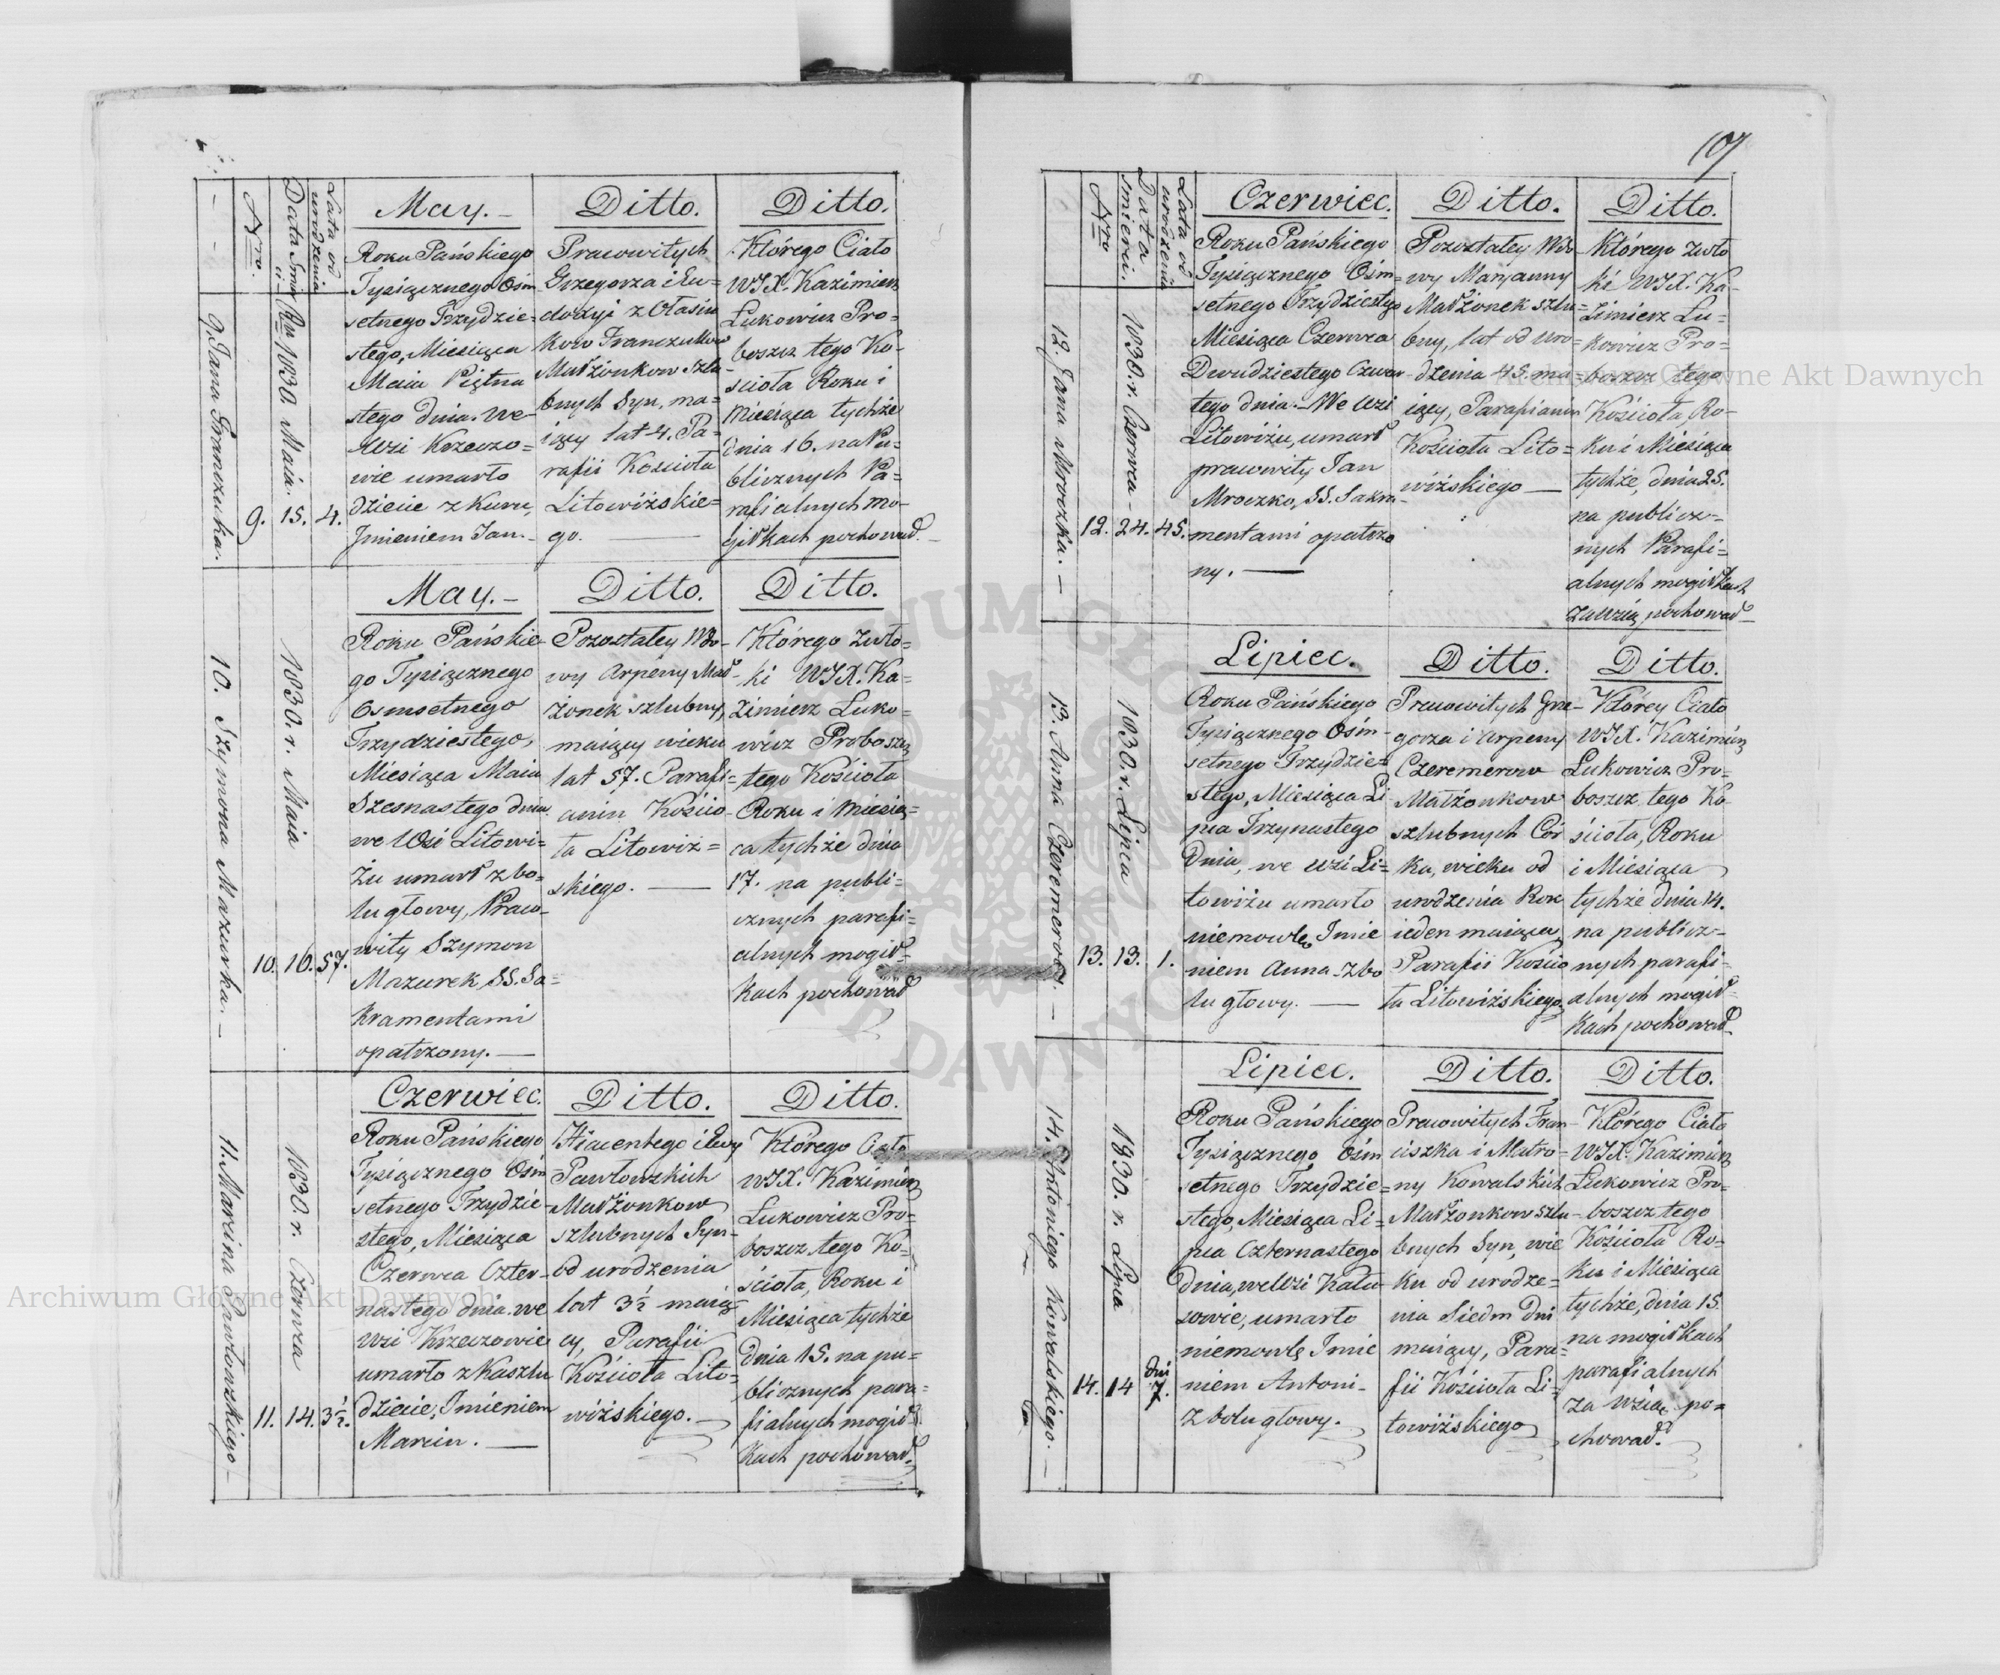 107
Nro.
Data Śmierci
Lata od urodzenia
May.
Roku Pańskiego
Tysiącznego Ośm
setnego Trzydzie-
stego, Miesiąca
Maia Piętna
stego dnia. We
Wsi Krzeczo=
wie umarło
dziecie z kuru,
Jmieniem Jan.-
Ditto.
Prawowitych
Grzegorza i Eu-
doxyi z
Franczukow
Małżonkow szlu-
bnych Syn, ma-
iący lat 4. Pa-
rafii Kościoła
Litowiżskie=
go.
Ditto.
Którego Ciało
WJX. Kazimierz
Łukowicz Pro-
boszcz tego Ko-
ścioła Roku i
Miesiąca tychże
dnia 16. na Pu-
blicznych Pa-
rafialnych mo-
giłkach pochował.
9. Jana Franczuka.
9.
1830 Maia 15.
4.
May.-
Roku Pańskie-
go Tysiącznego
Osmsetnego
Trzydziestego,
Miesiąca Maia
Szesnastego dnia
we Wsi Litowi-
żu umarł z bo-
lu głowy, Prawo-
wity Szymon
Mazurek, SS. Sa=
kramentami
opatrzony.-
Ditto.
Pozostałey Wdo-
wy Arpeny Mał-
żonek szlubny,
maiący wieku
lat 57. Parafi-
anin Kościo-
ła Litowiż=
skiego.
Ditto.
Którego zwło=
ki WJX. Ka=
zimierz Łuko=
wicz Proboszcz
tego Kościoła
Roku i Miesią=
ca tychże dnia
17. na publi-
cznych parafi-
alnych mogił-
kach pochował
10. Szymona Mazurka.-
10.
1830. r. Maia 16.
57.
Czerwiec.
Roku Pańskiego
Tysiącznego Ośm
setnego Trzydzie
stego, Miesiąca
Czerwca Czter-
nastego dnia. we
wsi Krzeczowie
umarło z Kaszlu
dziecie, Jmieniem
Marcin.
Ditto.
Hiacentego i Ewy
Pawłowskich
Małżonkow
szlubnych Syn-
od urodzenia
lat 3½ maią
cy, Parafii
Kościoła Lito-
wiżskiego.
Ditto.
Którego Ciało
WJX. Kazimierz
Łukowicz Pro-
boszcz tego Ko-
ścioła, Roku i
Miesiąca tychże
dnia 15. na pu-
blicznych para-
fialnych mogił
kach pochował.
11. Marcina Pawłowskiego-
11.
1830. r. Czerwca 14.
3½.
Nro.
Data śmierci.
Lata od urodzenia
Czerwiec.
Roku Pańskiego
Tysiącznego Ośm-
setnego Trzydziestego
Miesiąca Czerwca
Dwudziestego Czwar
tego dnia.- We Wsi
Litowiżu, umarł
prawowity Jan
Mroczko, SS. Sakra-
mentami opatrzo
ny.
Ditto.
Pozostałey Wdo-
wy Maryanny
Małżonek szlu-
bny, lat od uro-
dzenia 45. ma-
iący, Parafianin
Kościoła Lito=
wiżskiego
Ditto.
Którego zwło
ki WJX. Ka-
zimierz Łu-
kowicz Pro-
boszcz tego
Kościoła, Ro-
ku i Miesiąca
tychże, dnia 25.
na publicz-
nych Parafi=
alnych mogiłkach
pochował
12. Jana Mroczka.-
12.
1830. r. Czerwca 24.
45.
Lipiec.
Roku Pańskiego
Tysiącznego Ośm-
setnego Trzydzie-
stego, Miesiąca Li
pca Trzynastego
Dnia, we wsi Li=
towiżu umarło
niemowlę Jmie
niem Anna. z bo
lu głowy.
Ditto.
Prawowitych Grze-
gorza i Arpeny
Czeremerow
Małżonkow
szlubnych Cór
ka, wieku od
urodzenia Rok
ieden maiąca
Parafii Kościo
ła Litowiżskiego
Ditto.
Którey Ciało
WJX. Kazimierz
Łukowicz Pro-
boszcz tego Ko-
ścioła, Roku
i Miesiąca
tychże dnia 14.
na publicz-
nych parafi-
alnych mogił-
kach pochował.
13. Anna Czeremerowy.-
13.
1830. r. Lipca 13.
1.
Lipiec.
Roku Pańskiego
Tysiącznego Ośm
setnego Trzydzie=
stego, Miesiąca Li=
pca Czternastego
Dnia, we Wsi Kału
sowie, umarło
niemowlę Jmie
niem Antoni-
z bolu głowy.
Ditto.
Prawowitych Fran-
ciszka i Matro-
ny Kowalskich
Małżonkow szlu-
bnych Syn, wie
ku od urodze-
nia Siedm Dni
maiący, Para=
fii Kościoła Li-
towiżskiego
Ditto.
Którego Ciało
WJX. Kazimierz
Łukowicz Pro-
boszcz tego
Kościoła Ro-
ku i Miesiąca
tychże, dnia 15.
na mogiłkach
parafialnych
po=
chował.
14. Antoniego Kowalskiego.-
14.
1830. r. Lipca 14
dni 7.
Archiwum Główne Akt Dawnych
Archiwum Główne Akt Dawnych